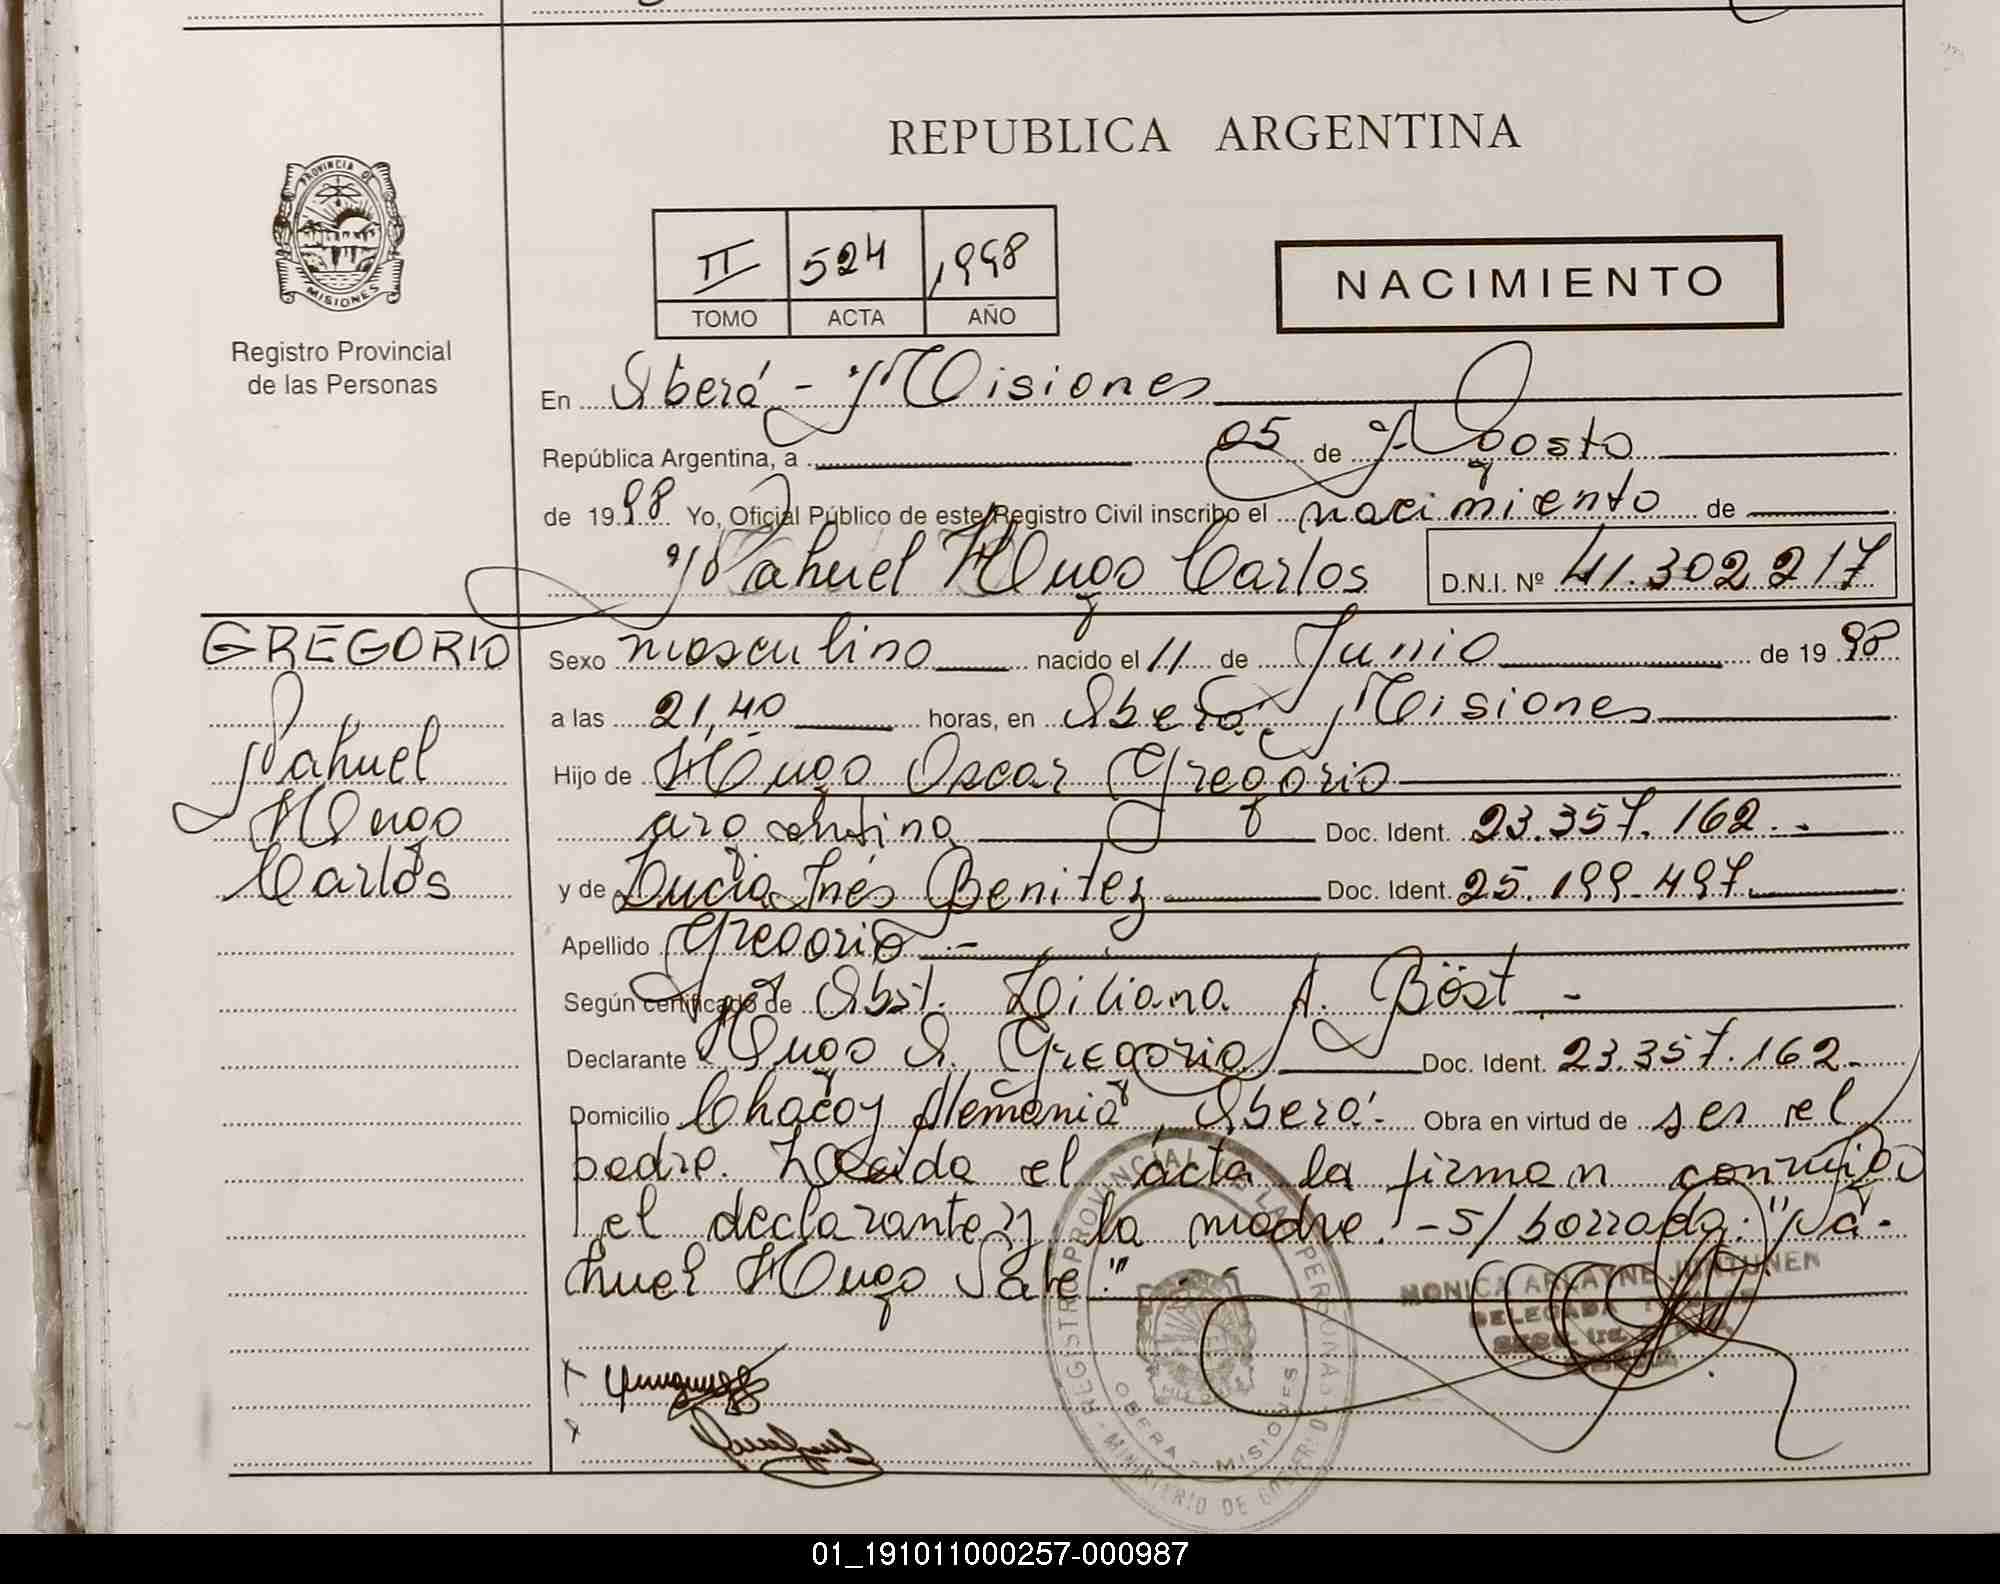 REPUBLICA ARGENTINA
PROVINCIA DE
MISIONES
Registro Provincial
de las Personas
II 524 1998
TOMO ACTA AÑO
NACIMIENTO
En Oberá - Misiones
República Argentina, a 05 de Agosto
de 1998 Yo, Oficial Público de este Registro Civil inscribo el nacimiento de
Nahuel Hugo Carlos D.N.I. Nº 41.302.217
GREGORIO
Nahuel
Hugo
Carlos
Sexo masculino nacido el 11 de Junio de 1998
a las 21,40 horas, en Oberá, Misiones
Hijo de Hugo Oscar Gregorio
argentino Doc. Ident. 23.357.162.-
y de Lucia Inés Benitez Doc. Ident. 25.199.497.
Apellido Gregorio.-
Según certificado de Obst. Liliana A. Böst.-
Declarante Hugo O. Gregorio Doc. Ident. 23.357.162.-
Domicilio Chaco y Alemania, Oberá.- Obra en virtud de ser el
padre. Leida el acta la firman conmigo
el declarante y la madre.-S/borrado: "Na-
huel Hugo"
REGISTRO PROVINCIAL DE LAS PERSONAS
OBERA - MISIONES
MINISTERIO DE GOBIERNO
MONICA
DELEGADA
01_191011000257-000987